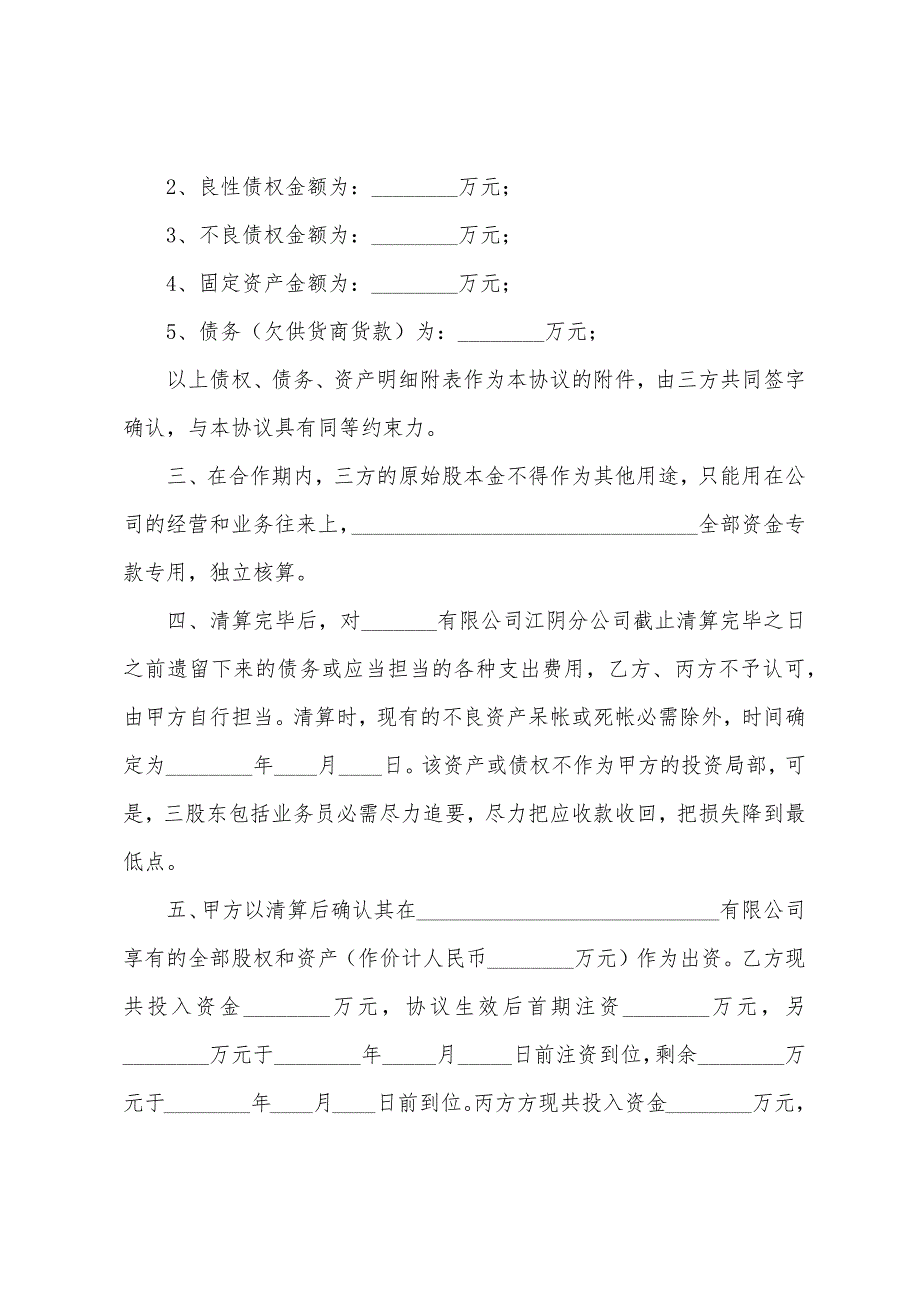 2、良性债权金额为：________万元；
3、不良债权金额为：________万元；
4、固定资产金额为：________万元；
5、债务（欠供货商货款）为：________万元；
以上债权、债务、资产明细附表作为本协议的附件，由三方共同签字
确认，与本协议具有同等约束力。
三、在合作期内，三方的原始股本金不得作为其他用途，只能用在公
司的经营和业务往来上，________________________________全部资金专
款专用，独立核算。
四、清算完毕后，对_______有限公司江阴分公司截止清算完毕之日
之前遗留下来的债务或应当担当的各种支出费用，乙方、丙方不予认可，
由甲方自行担当。清算时，现有的不良资产呆帐或死帐必需除外，时间确
定为________年____月____日。该资产或债权不作为甲方的投资局部，可
是，三股东包括业务员必需尽力追要，尽力把应收款收回，把损失降到最
低点。
五、甲方以清算后确认其在____________________________有限公司
享有的全部股权和资产（作价计人民币________万元）作为出资。乙方现
共投入资金________万元，协议生效后首期注资________万元，另
________万元于________年_____月_____日前注资到位，剩余________万
元于________年____月____日前到位。丙方方现共投入资金________万元，